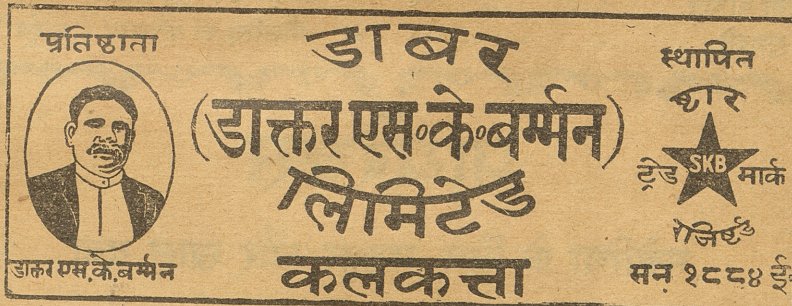 प्रतिष्ठाता
डाक्तर एस.के.बर्म्मन
डाबर
(डाक्तर एस०के०बर्म्मन)
लिमिटेड
कलकत्ता
स्थापित
ष्टार
ट्रेड SKB मार्क
रेजिष्टर्ड
सन् १८८४ ई०